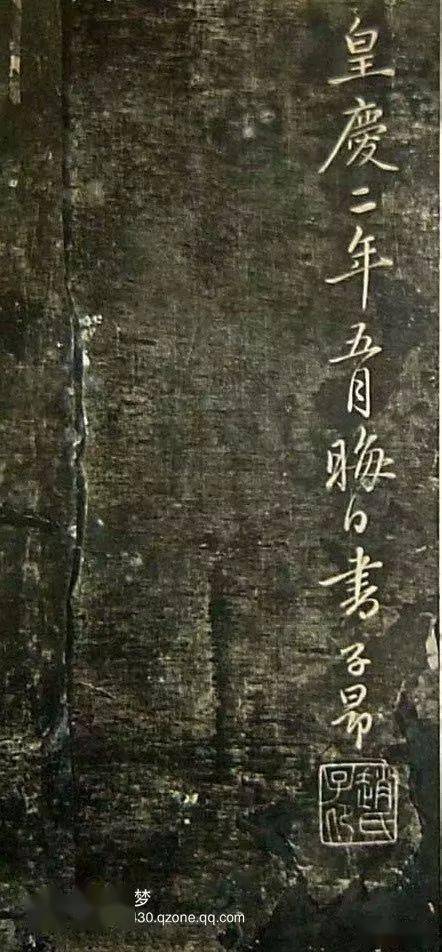 皇慶二年五月晦日書子昂
趙氏子昂
梦
430.qzone.qq.com